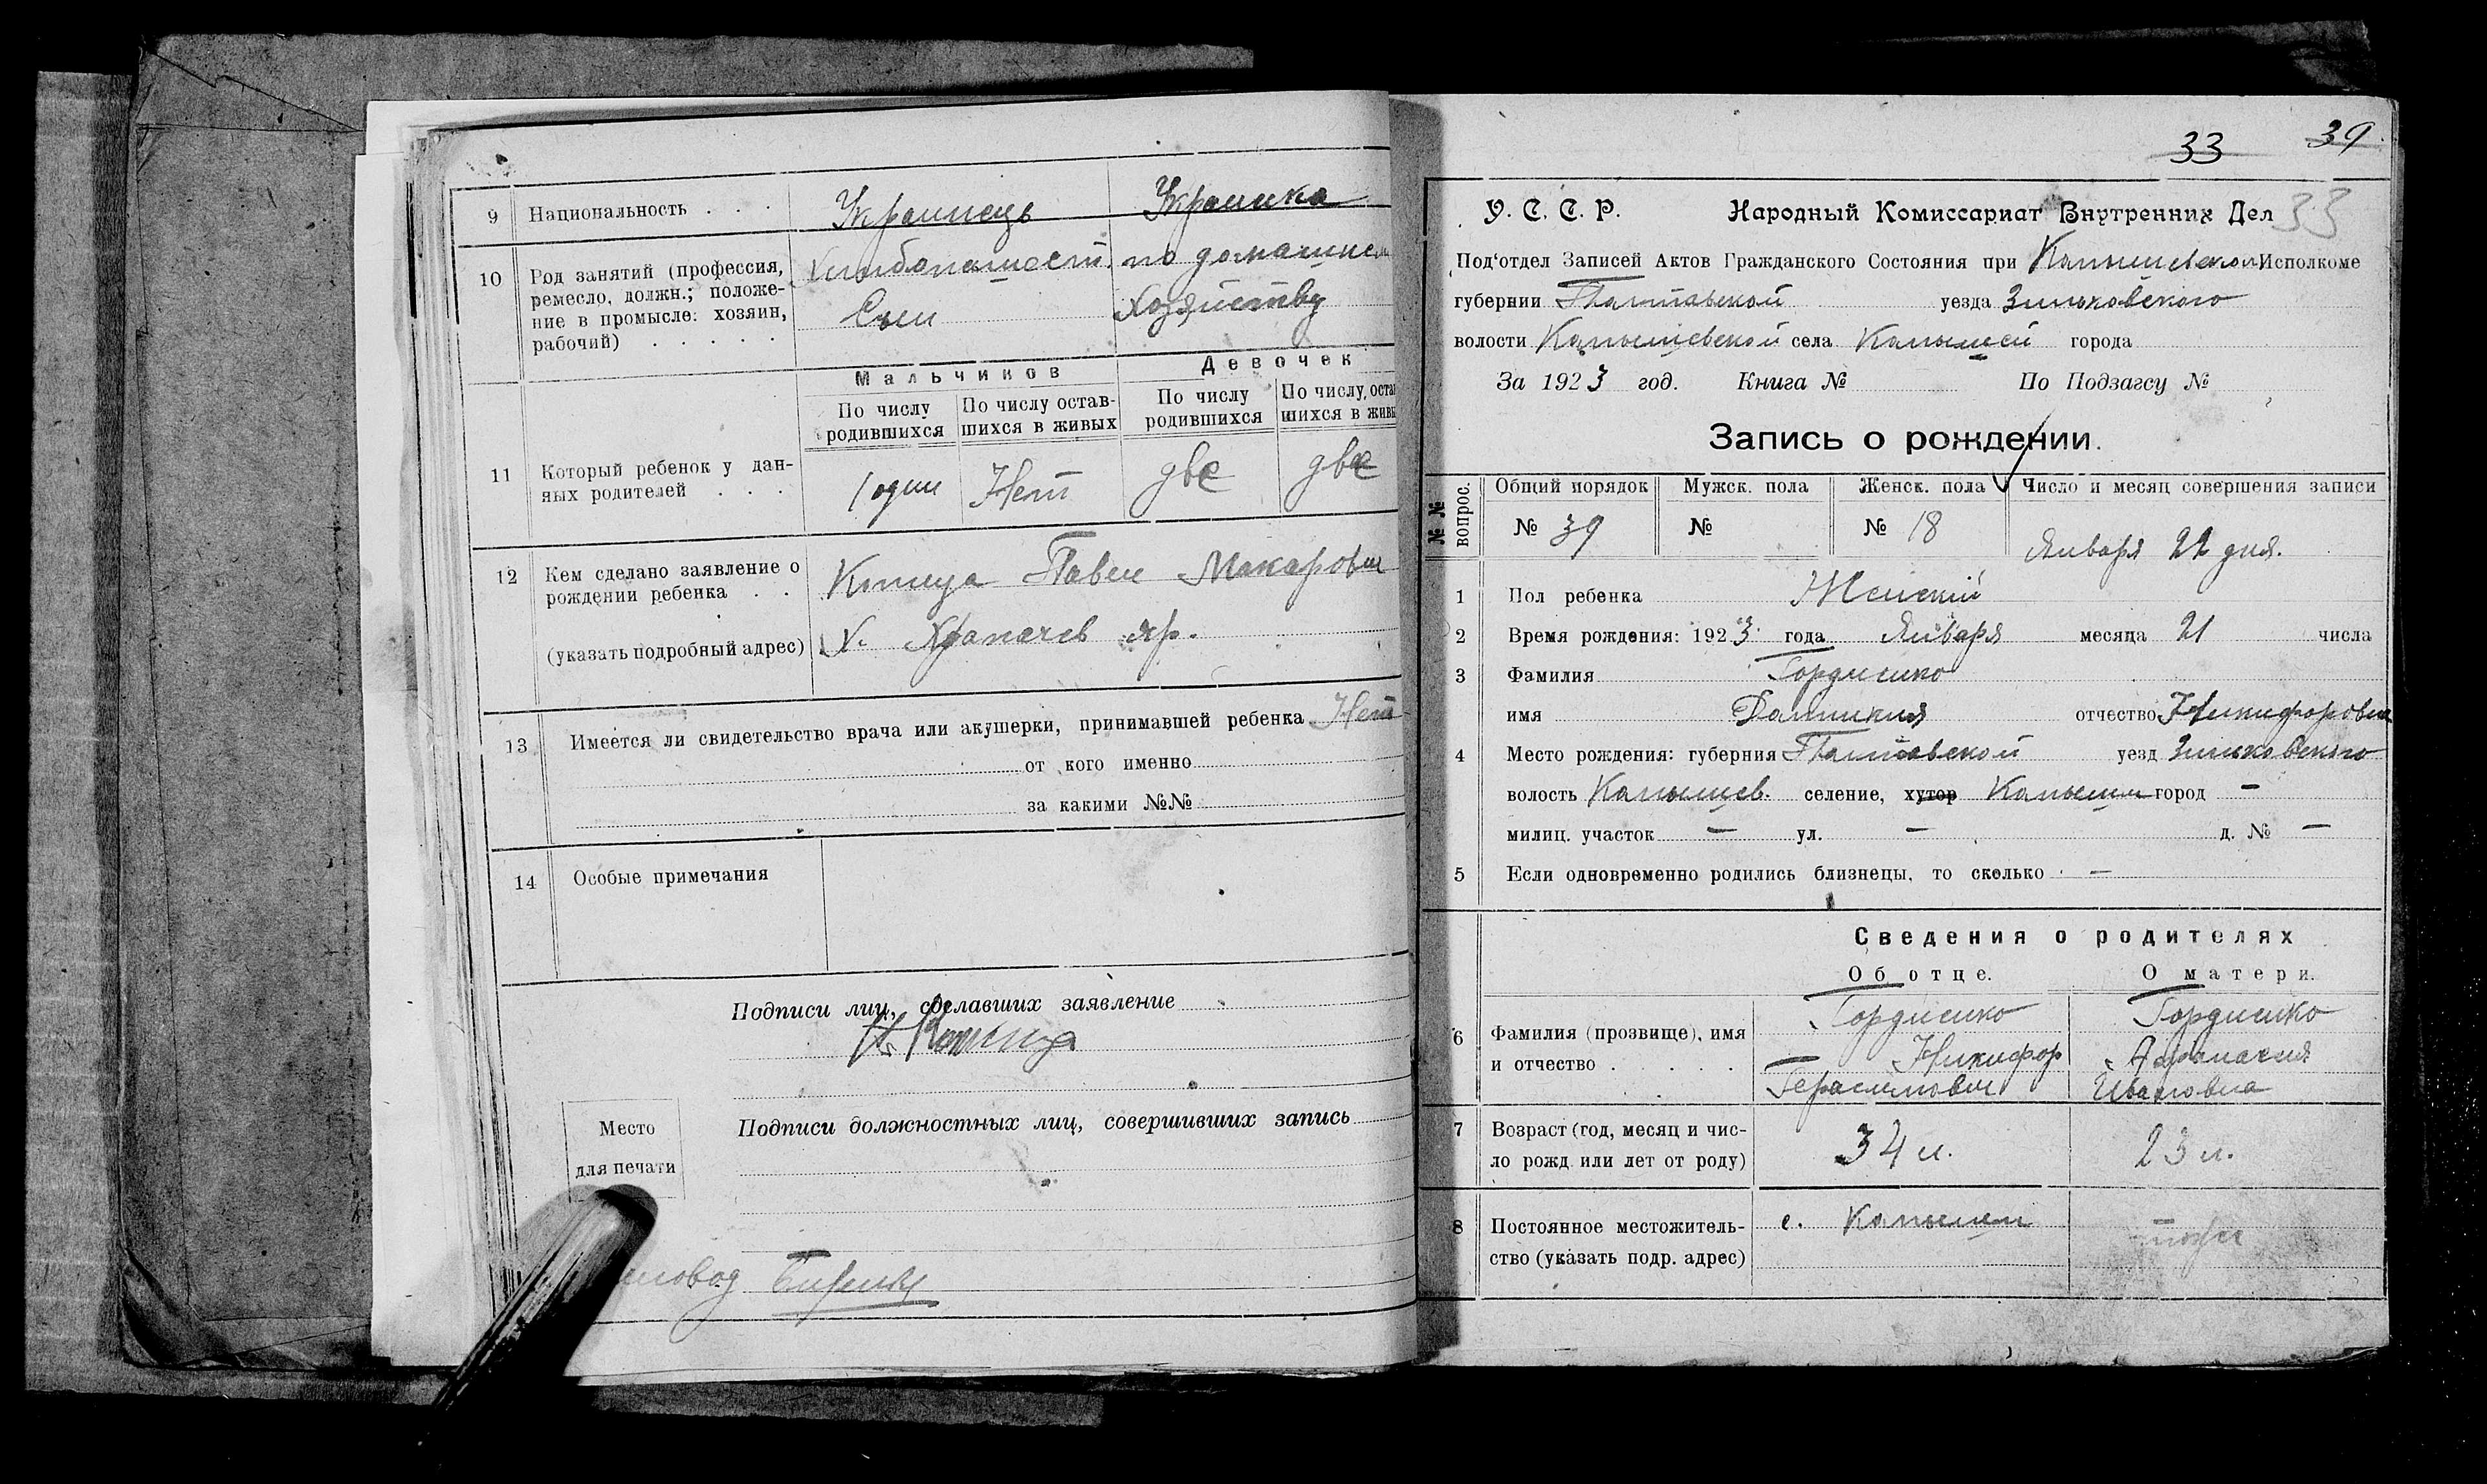 9 Национальность . . . Украинець Украинка
10 Род занятий (профессия, ремесло, должн.; положе-
ние в промысле: хозяин, рабочий) . . . . . Хлибопашест. по домашнем
Сын Хозяйству
Мальчиков Девочек
По числу родившихся По числу остав-
шихся в живых По числу родившихся По числу, оста
шихся в живы
11 Который ребенок у дан-
ных родителей . . . 1 один Нет две две
12 Кем сделано заявление о
рождении ребенка . . Павел Макарович
(указать подробный адрес) Х. яр.
13 Имеется ли свидетельство врача или акушерки, принимавшей ребенка Нет
от кого именно
за какими №№
14 Особые примечания
Подписи лиц, сделавших заявление
Подписи должностных лиц, совершивших запись
Место
для печати
33 39
У. С. С. Р. Народный Комиссариат Внутренних Дел 33
Под‘отдел Записей Актов Гражданского Состояния при Капышевском Исполкоме
губернии Полтавской уезда Зиньковского
волости Капышевской села Капышей города
За 1923 год. Книга № По Подзагсу №
Запись о рождении.
№ № вопрос. Общий порядок Мужск. пола Женск. пола Число и месяц совершения записи
№ 39 № № 18 Января 22 дня.
1 Пол ребенка Женский
2 Время рождения: 1923 года Января месяца 21 числа
3 Фамилия Гордиенко
имя Домникия отчество Никифоровна
4 Место рождения: губерния Полтавской уезд Зиньковского
волость Капышев. селение, хутор Капыши город —
милиц. участок — ул. — д. № —
5 Если одновременно родились близнецы, то сколько —
Сведения о родителях
Об отце. О матери.
6 Фамилия (прозвище), имя
и отчество . . . . . Гордиенко Никифор Герасимович Гордиенко Ивановна
7 Возраст (год, месяц и чис-
ло рожд. или лет от роду) 34 л. 23 л.
8 Постоянное местожитель-
ство (указать подр. адрес) с. Капыши тоже